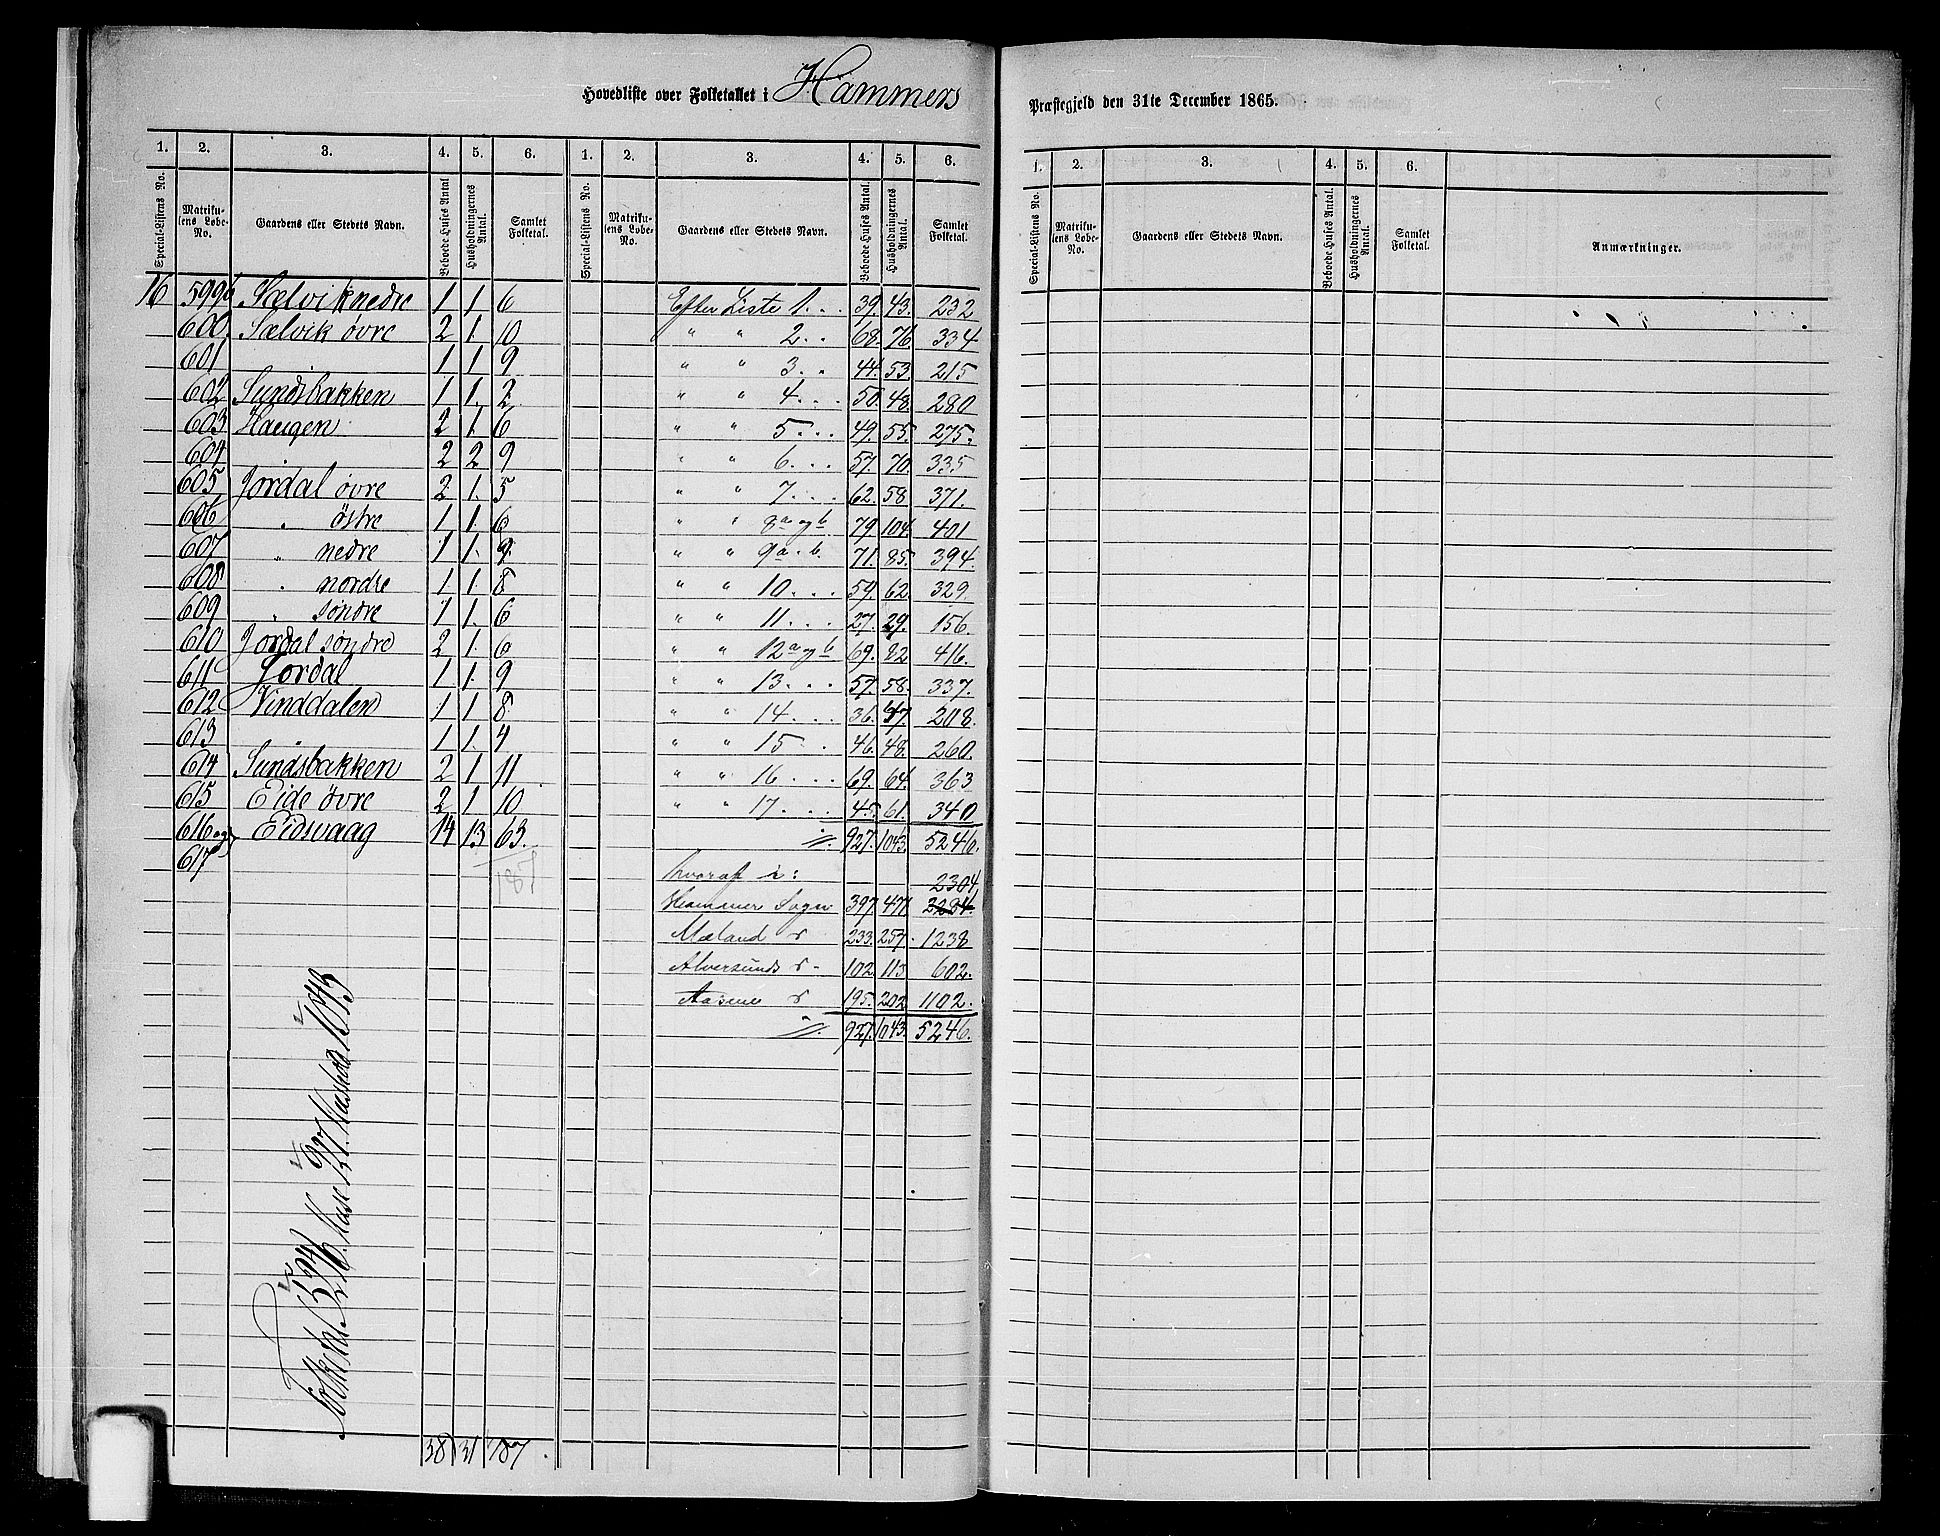 Hovedliste over Folketallet i Hammers
Præstegjeld den 31te December 1865.
1. 2. 3. 4. 5. 6. 1. 2. 3. 4. 5. 6.
Special-Listens No. Matrikulens Løbe-No. Gaardens eller Stedets Navn. Beboede Huses Antal Husholdningernes Antal. Samlet Folketal. Special-Listens No. Matrikulens Løbe-No. Gaardens eller Stedets Navn. Beboede Huses Antal. Husholdningernes Antal. Samlet Folketal.
16 599b Sælvik nedre 1 1 6
600 Sælvik øvre 2 1. 10
601 1 1 9
602 Sundsbakken 1 1. 2
603 Haugen 2 1. 6
604 2 2 9
605 Jordal øvre 2 1. 5
606 " østre 1 1. 6
607 " nedre 1 1. 9
608 " nordre 1 1. 8
609 " søndre 1 1. 6
610 Jordal søndre 2 1. 6
611 Jordal 1 1. 9
612 Vinddalen 1 1 8
613 1 1. 4
614 Sundsbakken 2 1 11
615 Eide øvre 2 1 10
616 og Eidsvaag 14 13 63.
617
187
38 31 187.
Efter Liste 1... 39. 43. 232
" " 2.. 68. 76. 334
" " 3.. 44. 53. 215
" " 4... 50. 48. 280
" " 5... 49. 55. 275.
" " 6... 57. 70. 335
" " 7... 62. 58 371.
" " 8a og b 79. 104. 401
" " 9a. b. 71. 85. 394.
" " 10... 59. 62 329.
" " 11... 27. 29. 156.
" " 12a og b 69. 82 416.
" " 13... 57. 58. 337.
" " 14... 36. 47. 208.
" " 15.. 46. 48. 260.
" " 16... 69. 64. 363
" " 17.... 45. 61. 340
927. 1043. 5246.
hvoraf i: 2304,
Hammer Sogn 397. 471. 2284.
Mæland s 233. 257. 1238
Alversunds s- 102. 113 602.
Aasene s 195. 202 1102.
927. 1043. 5246.
1. 2. 3. 4. 5. 6.
Special-Listens No. Matrikulens Løbe-No. Gaardens eller Stedets Navn. Beboede Huses Antal. Husholdningernes Antal. Samlet Folketal. Anmærkninger.